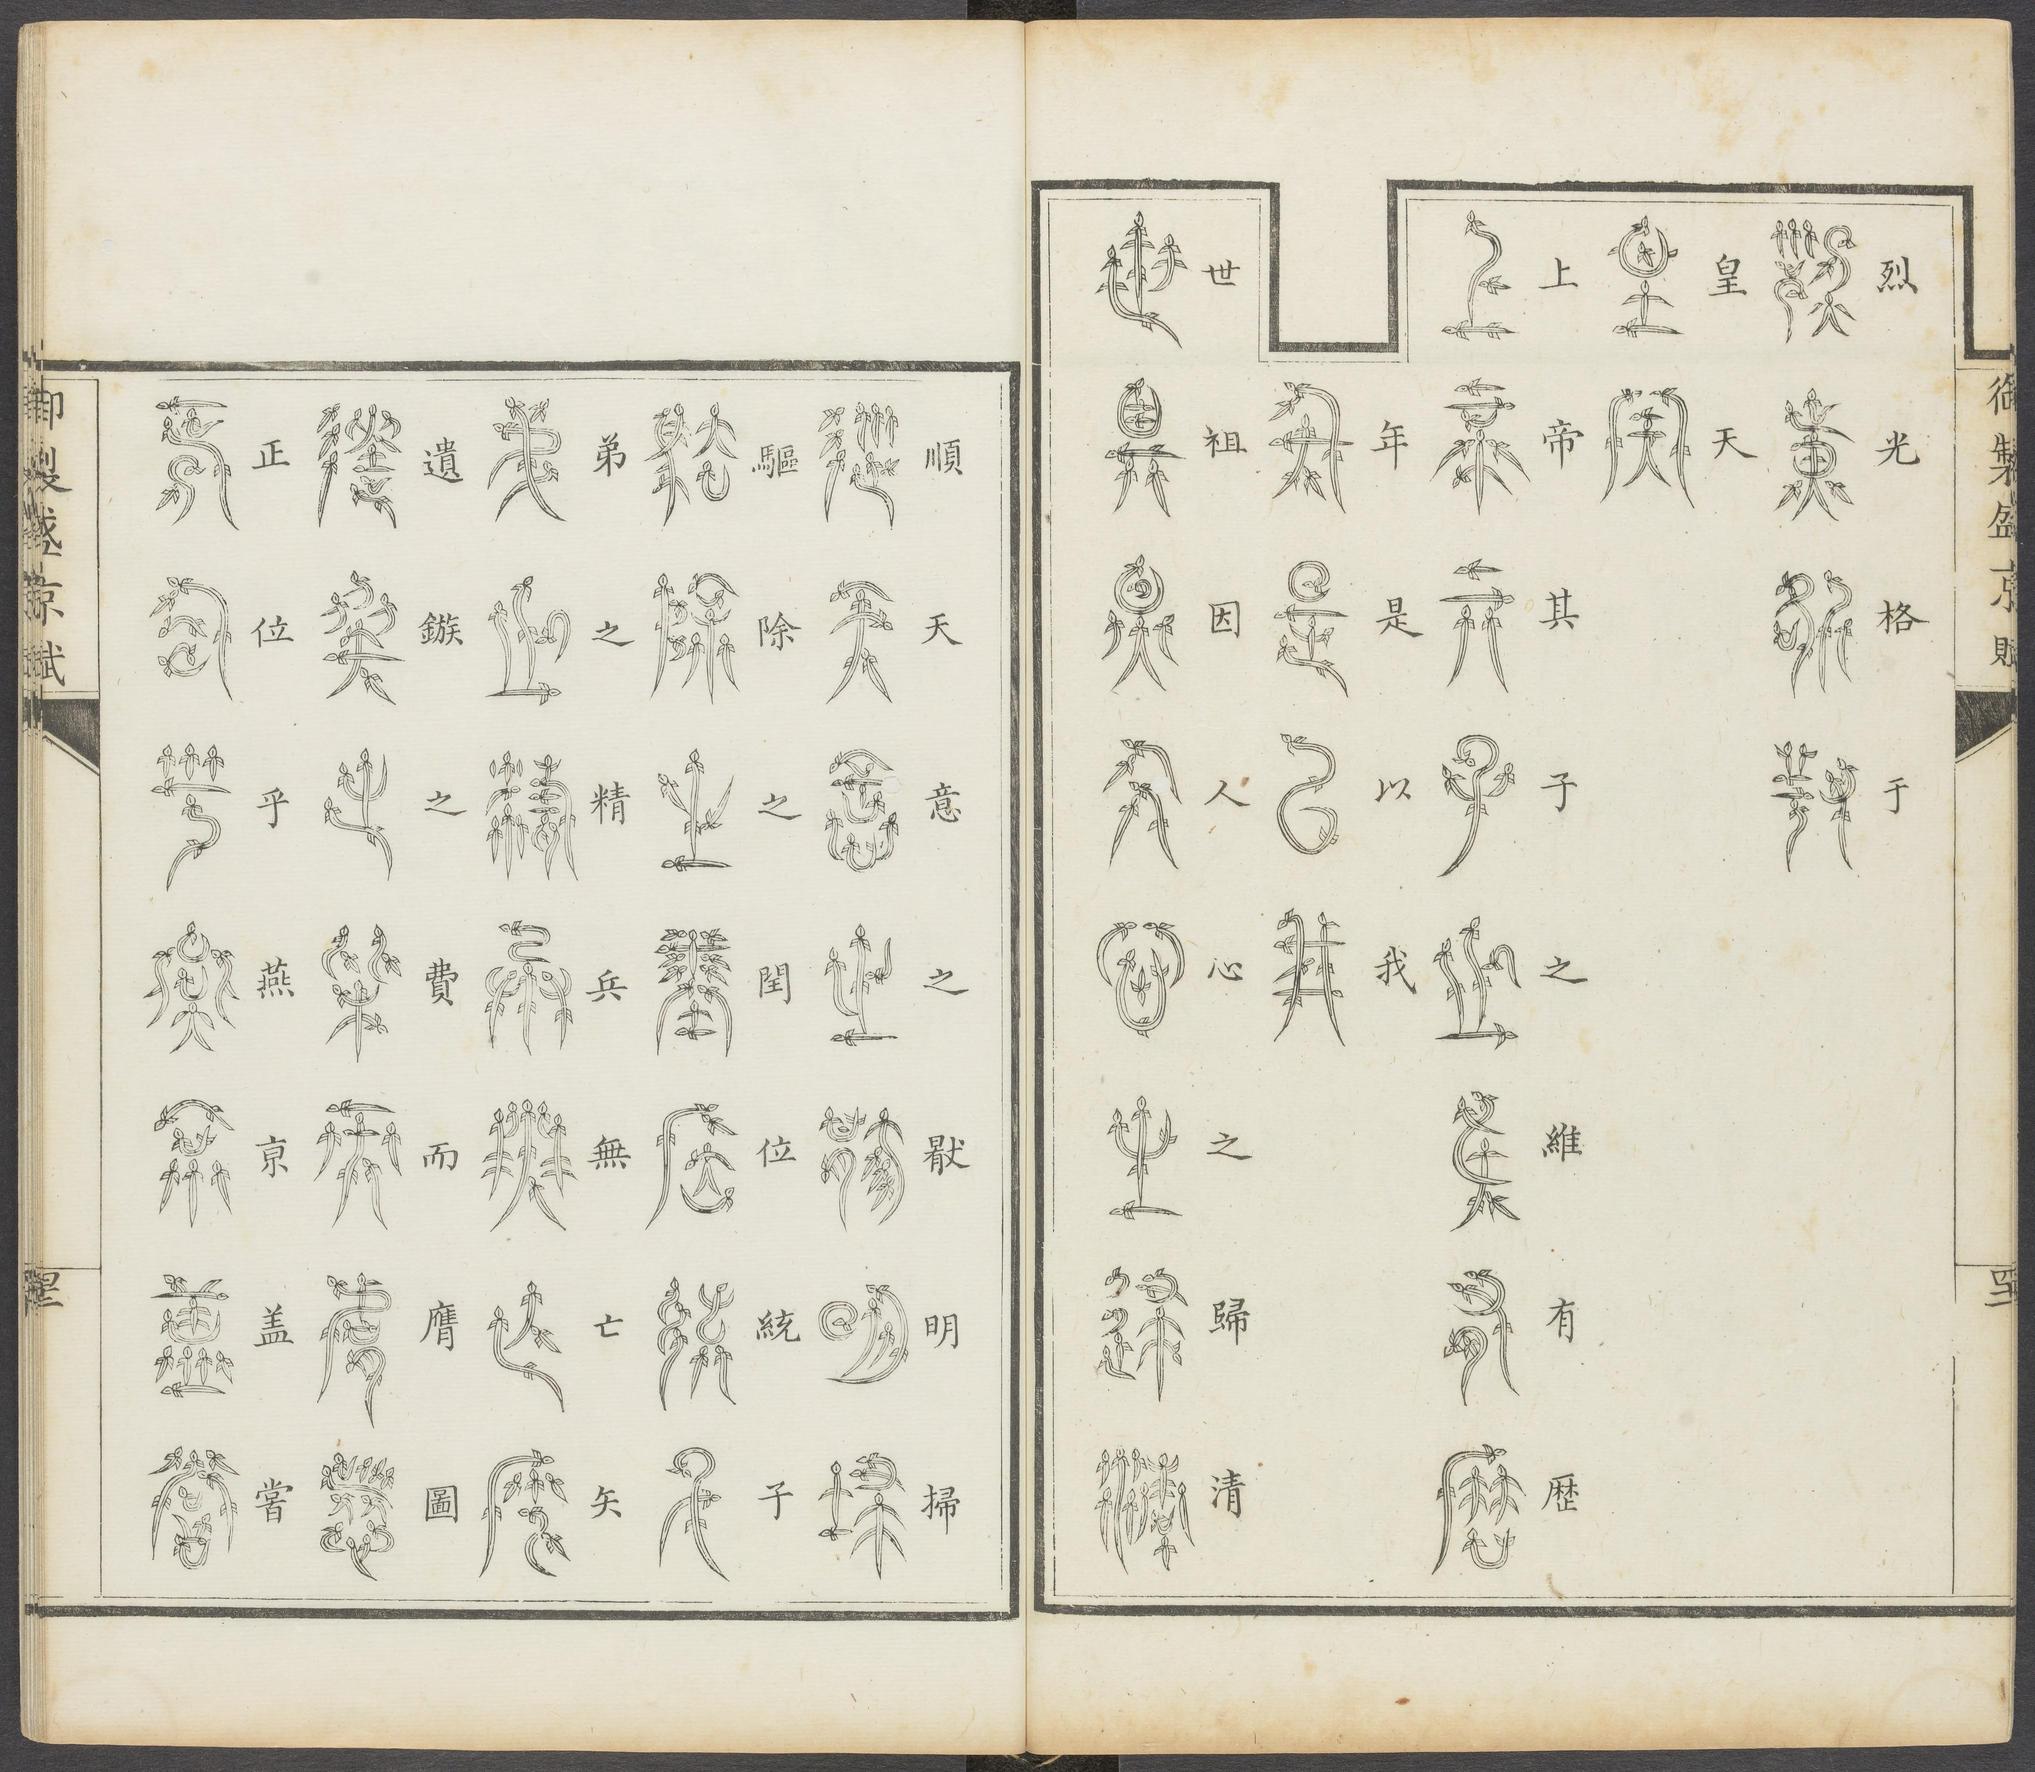 御製盛京賦
烈光格于
皇天
上帝其子之維有歴
年是以我
世祖因人心之歸清
順天意之厭明掃
驅除之閏位統子
弟之精兵無亡矢
遺鏃之費而膺圖
正位乎燕京盖嘗
御製盛京賦